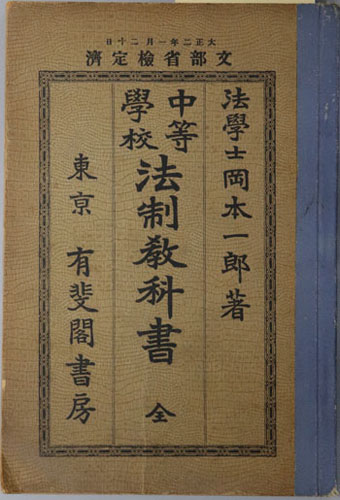 大正二年一月二十日
文部省檢定濟
法學士岡本一郎著
中等
學校
法制教科書 全
東京 有斐閣書房